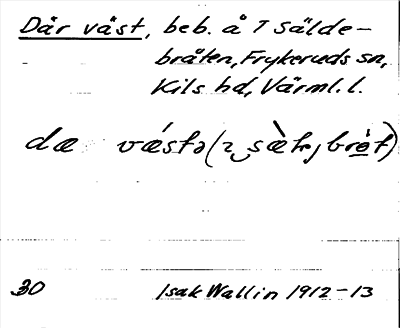 Där väst, beb. å 7 Sälde-
bråten, Frykeruds sn,
Kils hd, Värml. l.
dæ vǽstə
30 Isak Wallin 1912-13